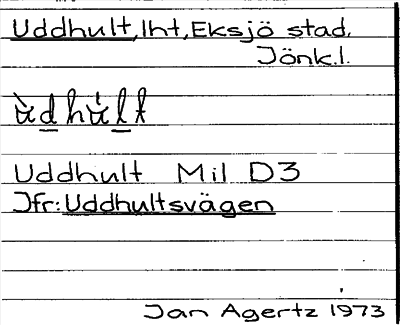 Uddhult, lht, Eksjö stad,
Jönk.l.
Uddhult Mil D3
Jfr: Uddhultsvägen
Jan Agertz 1973